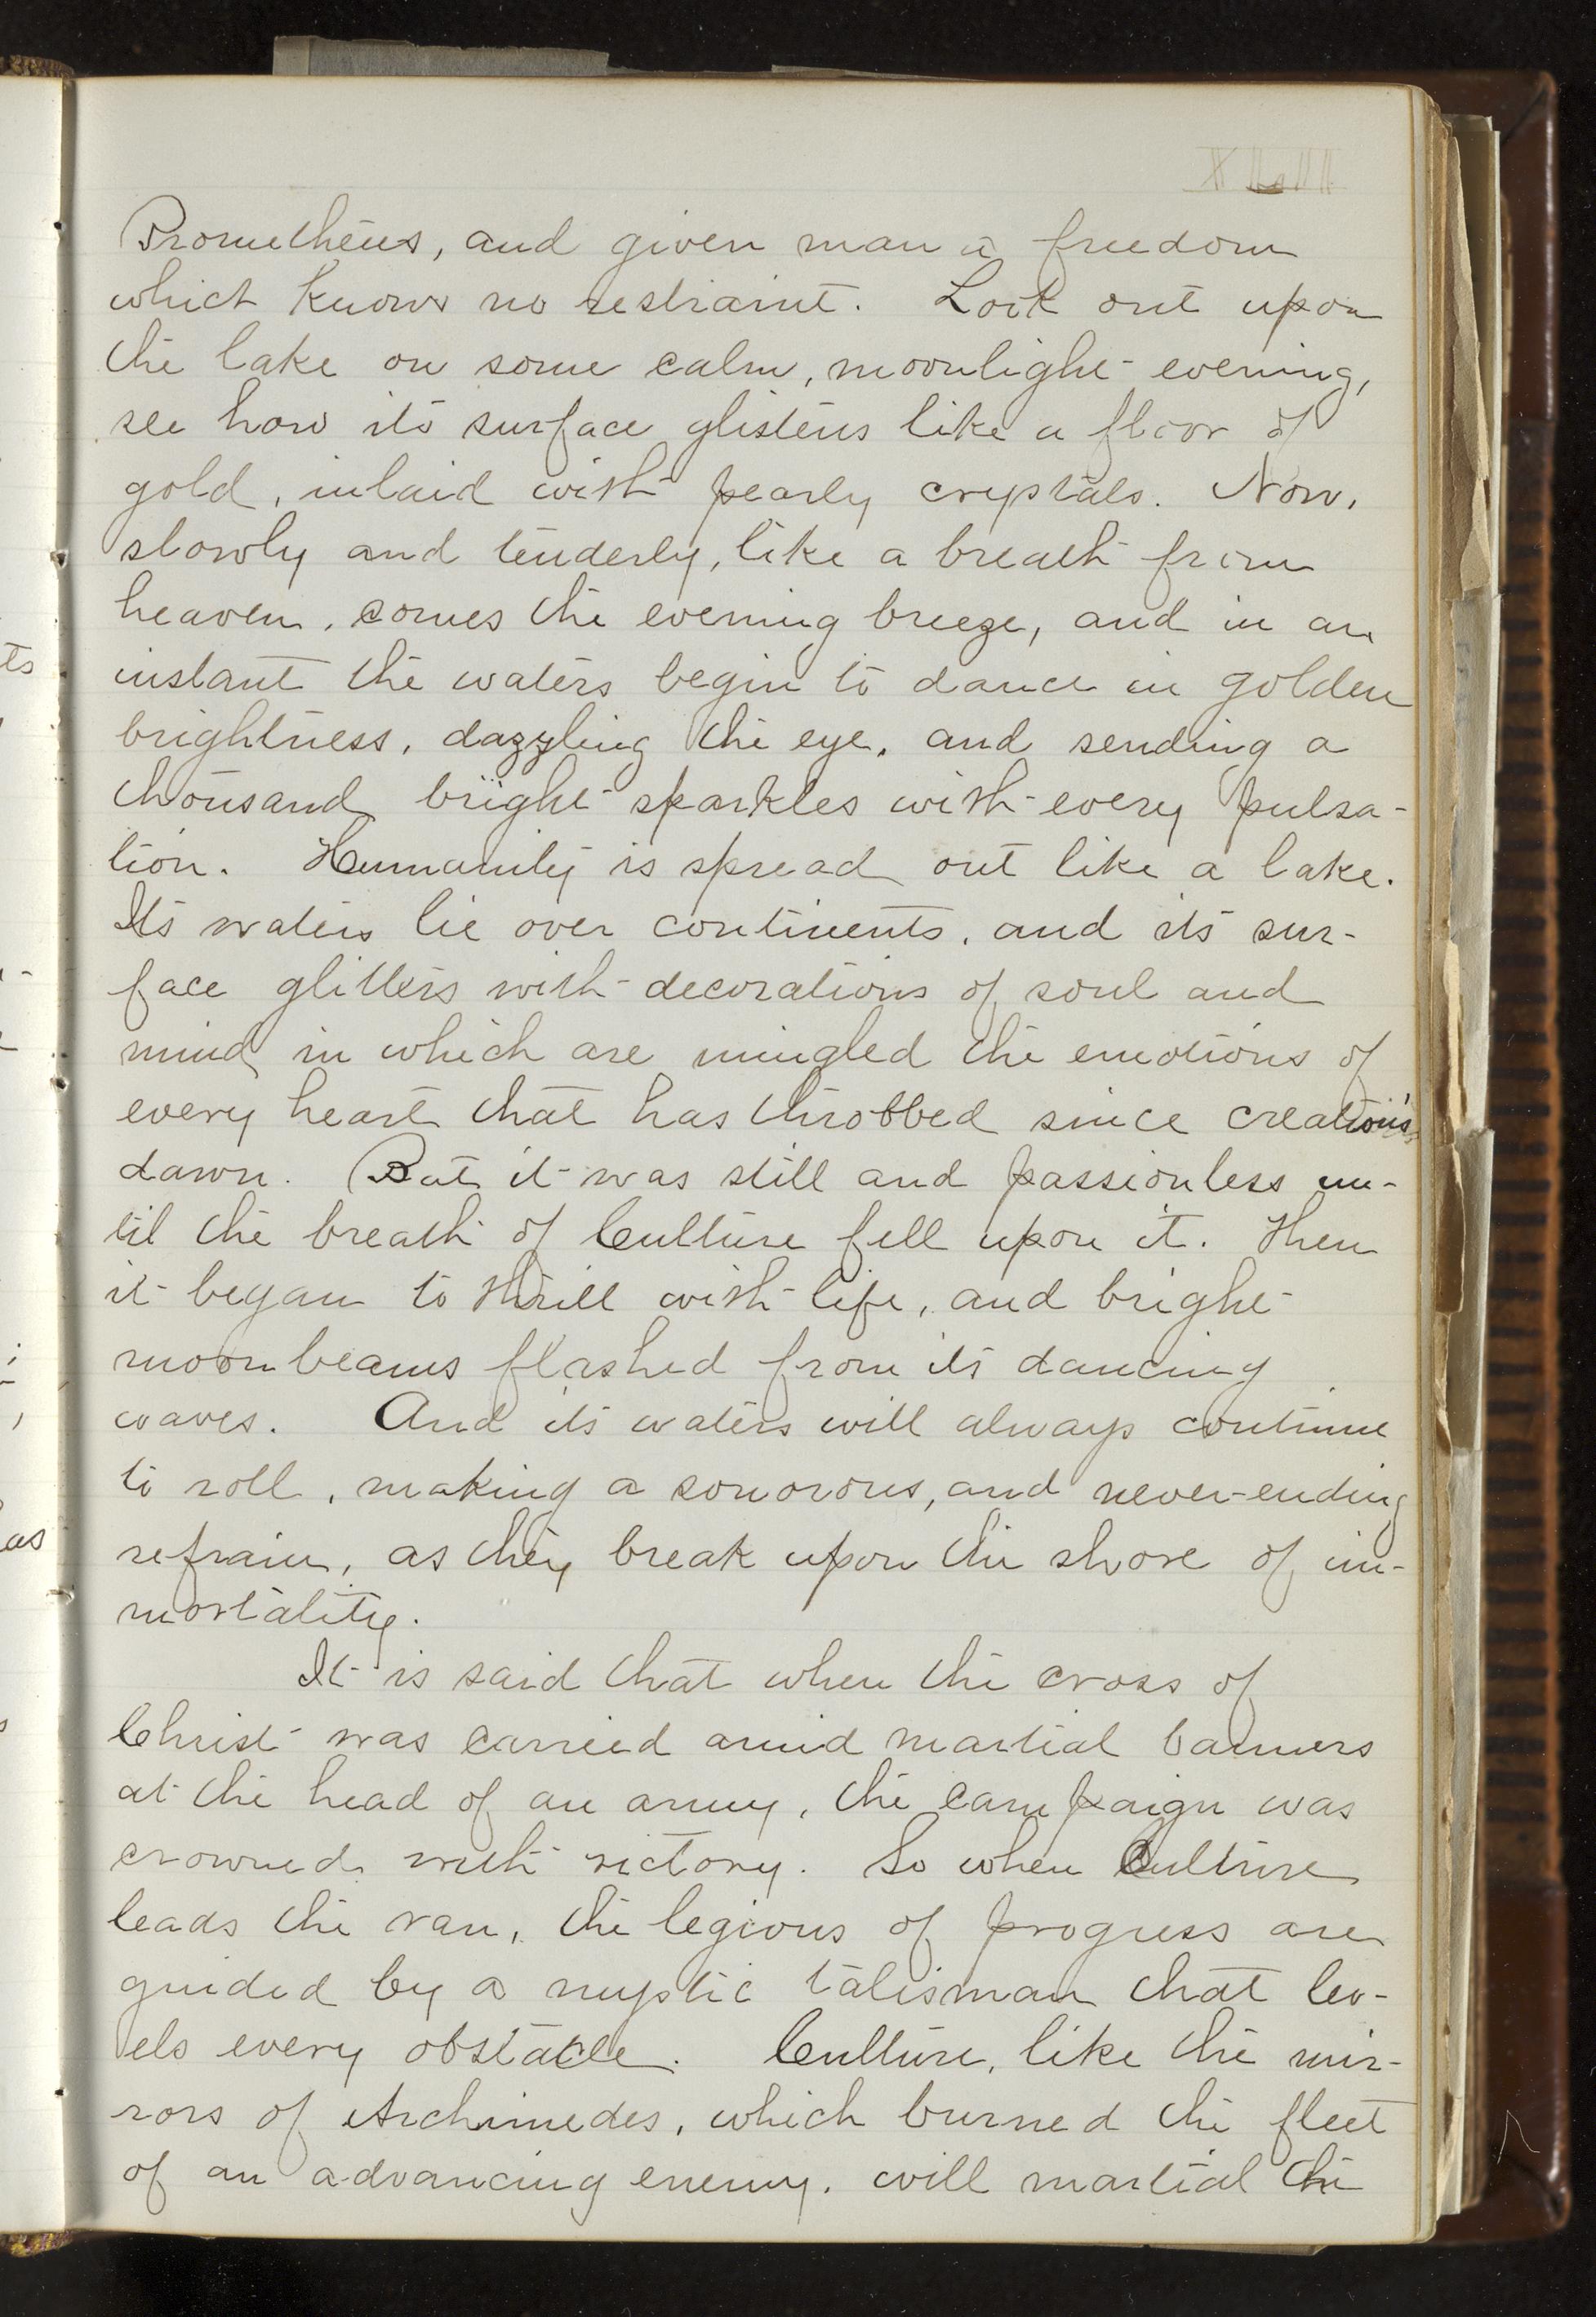 Prometheus, and given man a freedom
which knows no restraint. Look out upon
the lake on some calm, moonlight evening,
see how its surface glistens like a floor of
gold, inlaid with pearly crystals. Now,
slowly and tenderly, like a breath from
heaven, comes the evening breeze, and in an
instant the waters begin to dance in golden
brightness, dazzling the eye, and sending a
thousand bright sparkles with every pulsa-
tion. Humanity is spread out like a lake.
Its waters lie over continents, and its sur-
face glitters with decorations of soul and
mind, in which are mingled the emotions of
every heart that has throbbed since creation's
dawn. But it was still and passionless un-
til the breath of Culture fell upon it. Then
it began to thrill with life, and bright
moonbeams flashed from its dancing
waves. And its waters will always continue
to roll, making a sonorous, and never-ending
refrain, as they break upon the shore of im-
mortality.
It is said that when the cross of
Christ was carried amid martial banners
at the head of an army, the campaign was
crowned with victory. So when Culture
leads the van, the legions of progress are
guided by a mystic talisman that lev-
els every obstacle. Culture, like the mir-
rors of Archimedes, which burned the fleet
of an advancing enemy, will martial the
ts
as